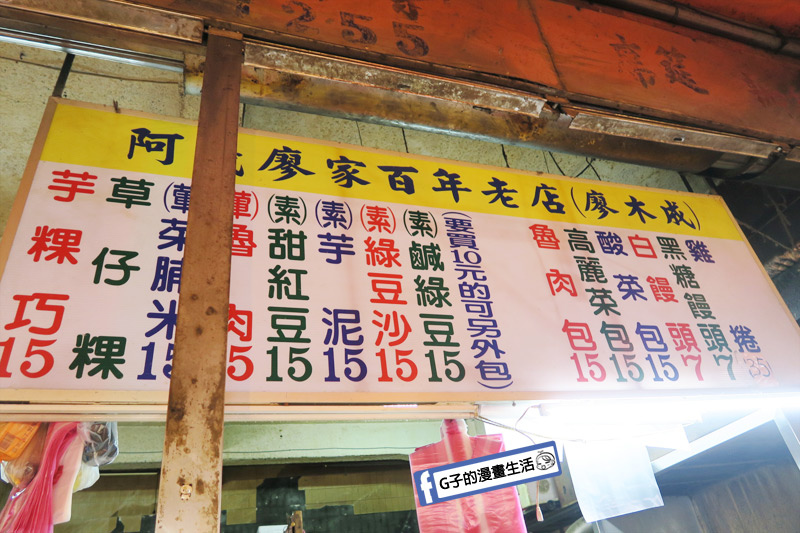 255
阿 廖家百年老店(廖木成)
芋粿巧15
草仔粿
(葷)菜脯米15
(葷)魯肉15
(素)甜紅豆15
(素)芋泥15
(素)綠豆沙15
(素)鹹綠豆15
(要買10元的可另外包)
魯肉包15
高麗菜包15
酸菜包15
白饅頭7
黑糖饅頭7
雞捲35
f G子的漫畫生活